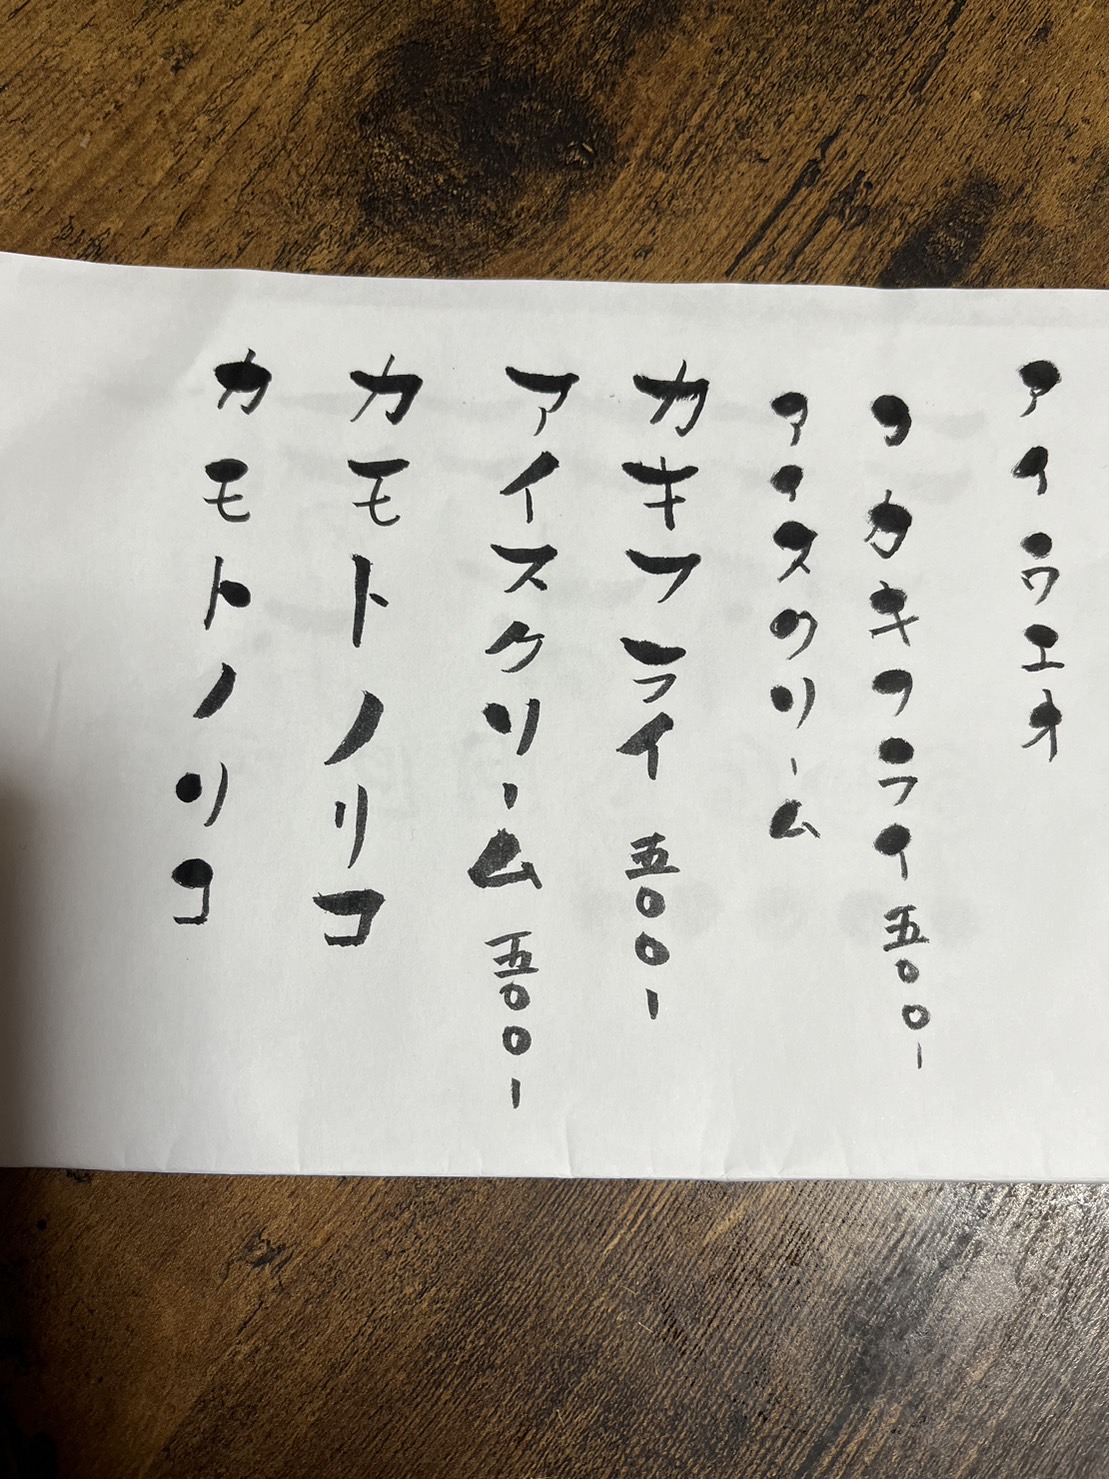 アイウエオ
カキフライ五〇〇ー
アイスクリーム
カキフライ五〇〇ー
アイスクリーム五〇〇ー
カモトノリコ
カモトノリコ